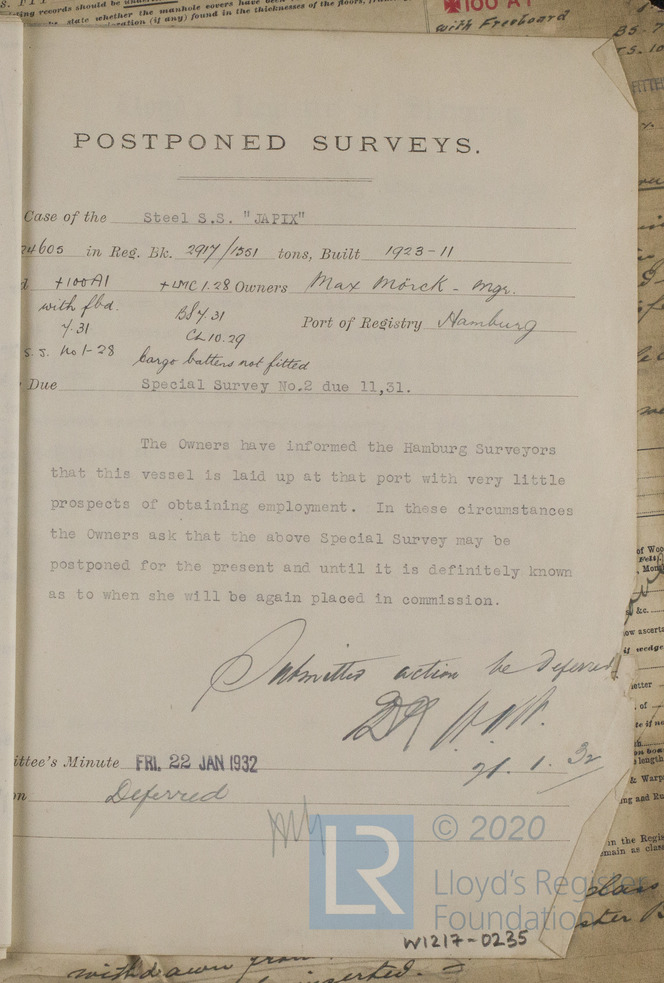 ting records should be
state whether the manhole covers have been
ration (if any) found in the thicknesses of the floors,
100 A1
with Freeboard
POSTPONED SURVEYS.
Case of the Steel S.S. "JAPIX"
24605 in Reg. Bk. 2917/1351 tons, Built 1923-11
+100A1 +LMC 1.28 Owners Max Mörck - Mgr.
with fbd. BS 4.31
4.31 Port of Registry Hamburg
CL 10.29
S.S. No 1-28 Cargo battens not fitted
Due Special Survey No.2 due 11,31.
The Owners have informed the Hamburg Surveyors
that this vessel is laid up at that port with very little
prospects of obtaining employment. In these circumstances
the Owners ask that the above Special Survey may be
postponed for the present and until it is definitely known
as to when she will be again placed in commission.
Submitted action be deferred
21.1.32
ittee's Minute FRI. 22 JAN 1932
n Deferred
LR © 2020
Lloyd's Register
Foundation
W1217-0235
withdawn from
inserted.